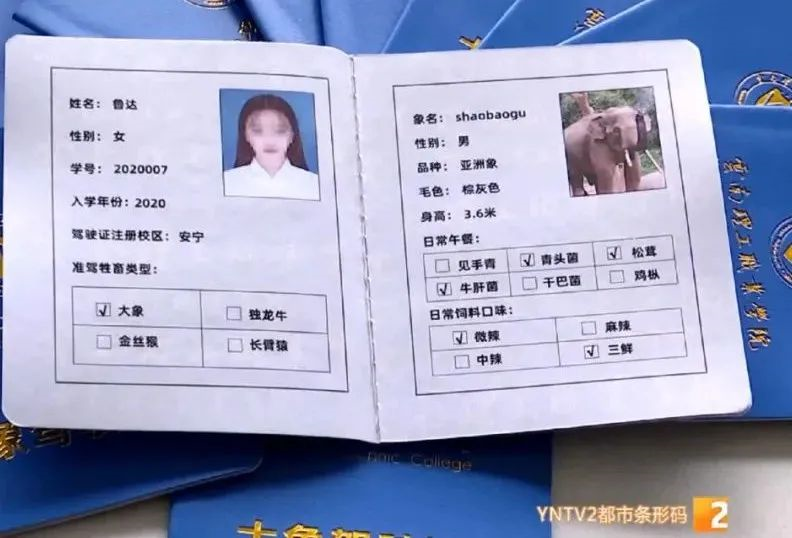 姓名： 鲁达
性别： 女
学号： 2020007
入学年份：2020
驾驶证注册校区：安宁
准驾牲畜类型：
√ 大象 独龙牛
金丝猴 长臂猿
象名： shaobaogu
性别： 男
品种： 亚洲象
毛色： 棕灰色
身高： 3.6米
日常午餐：
见手青 √ 青头菌 √ 松茸
√ 牛肝菌 干巴菌 鸡枞
日常饲料口味：
√ 微辣 麻辣
中辣 √ 三鲜
云南理工职业学院
College
大象驾驶
YNTV2都市条形码 2